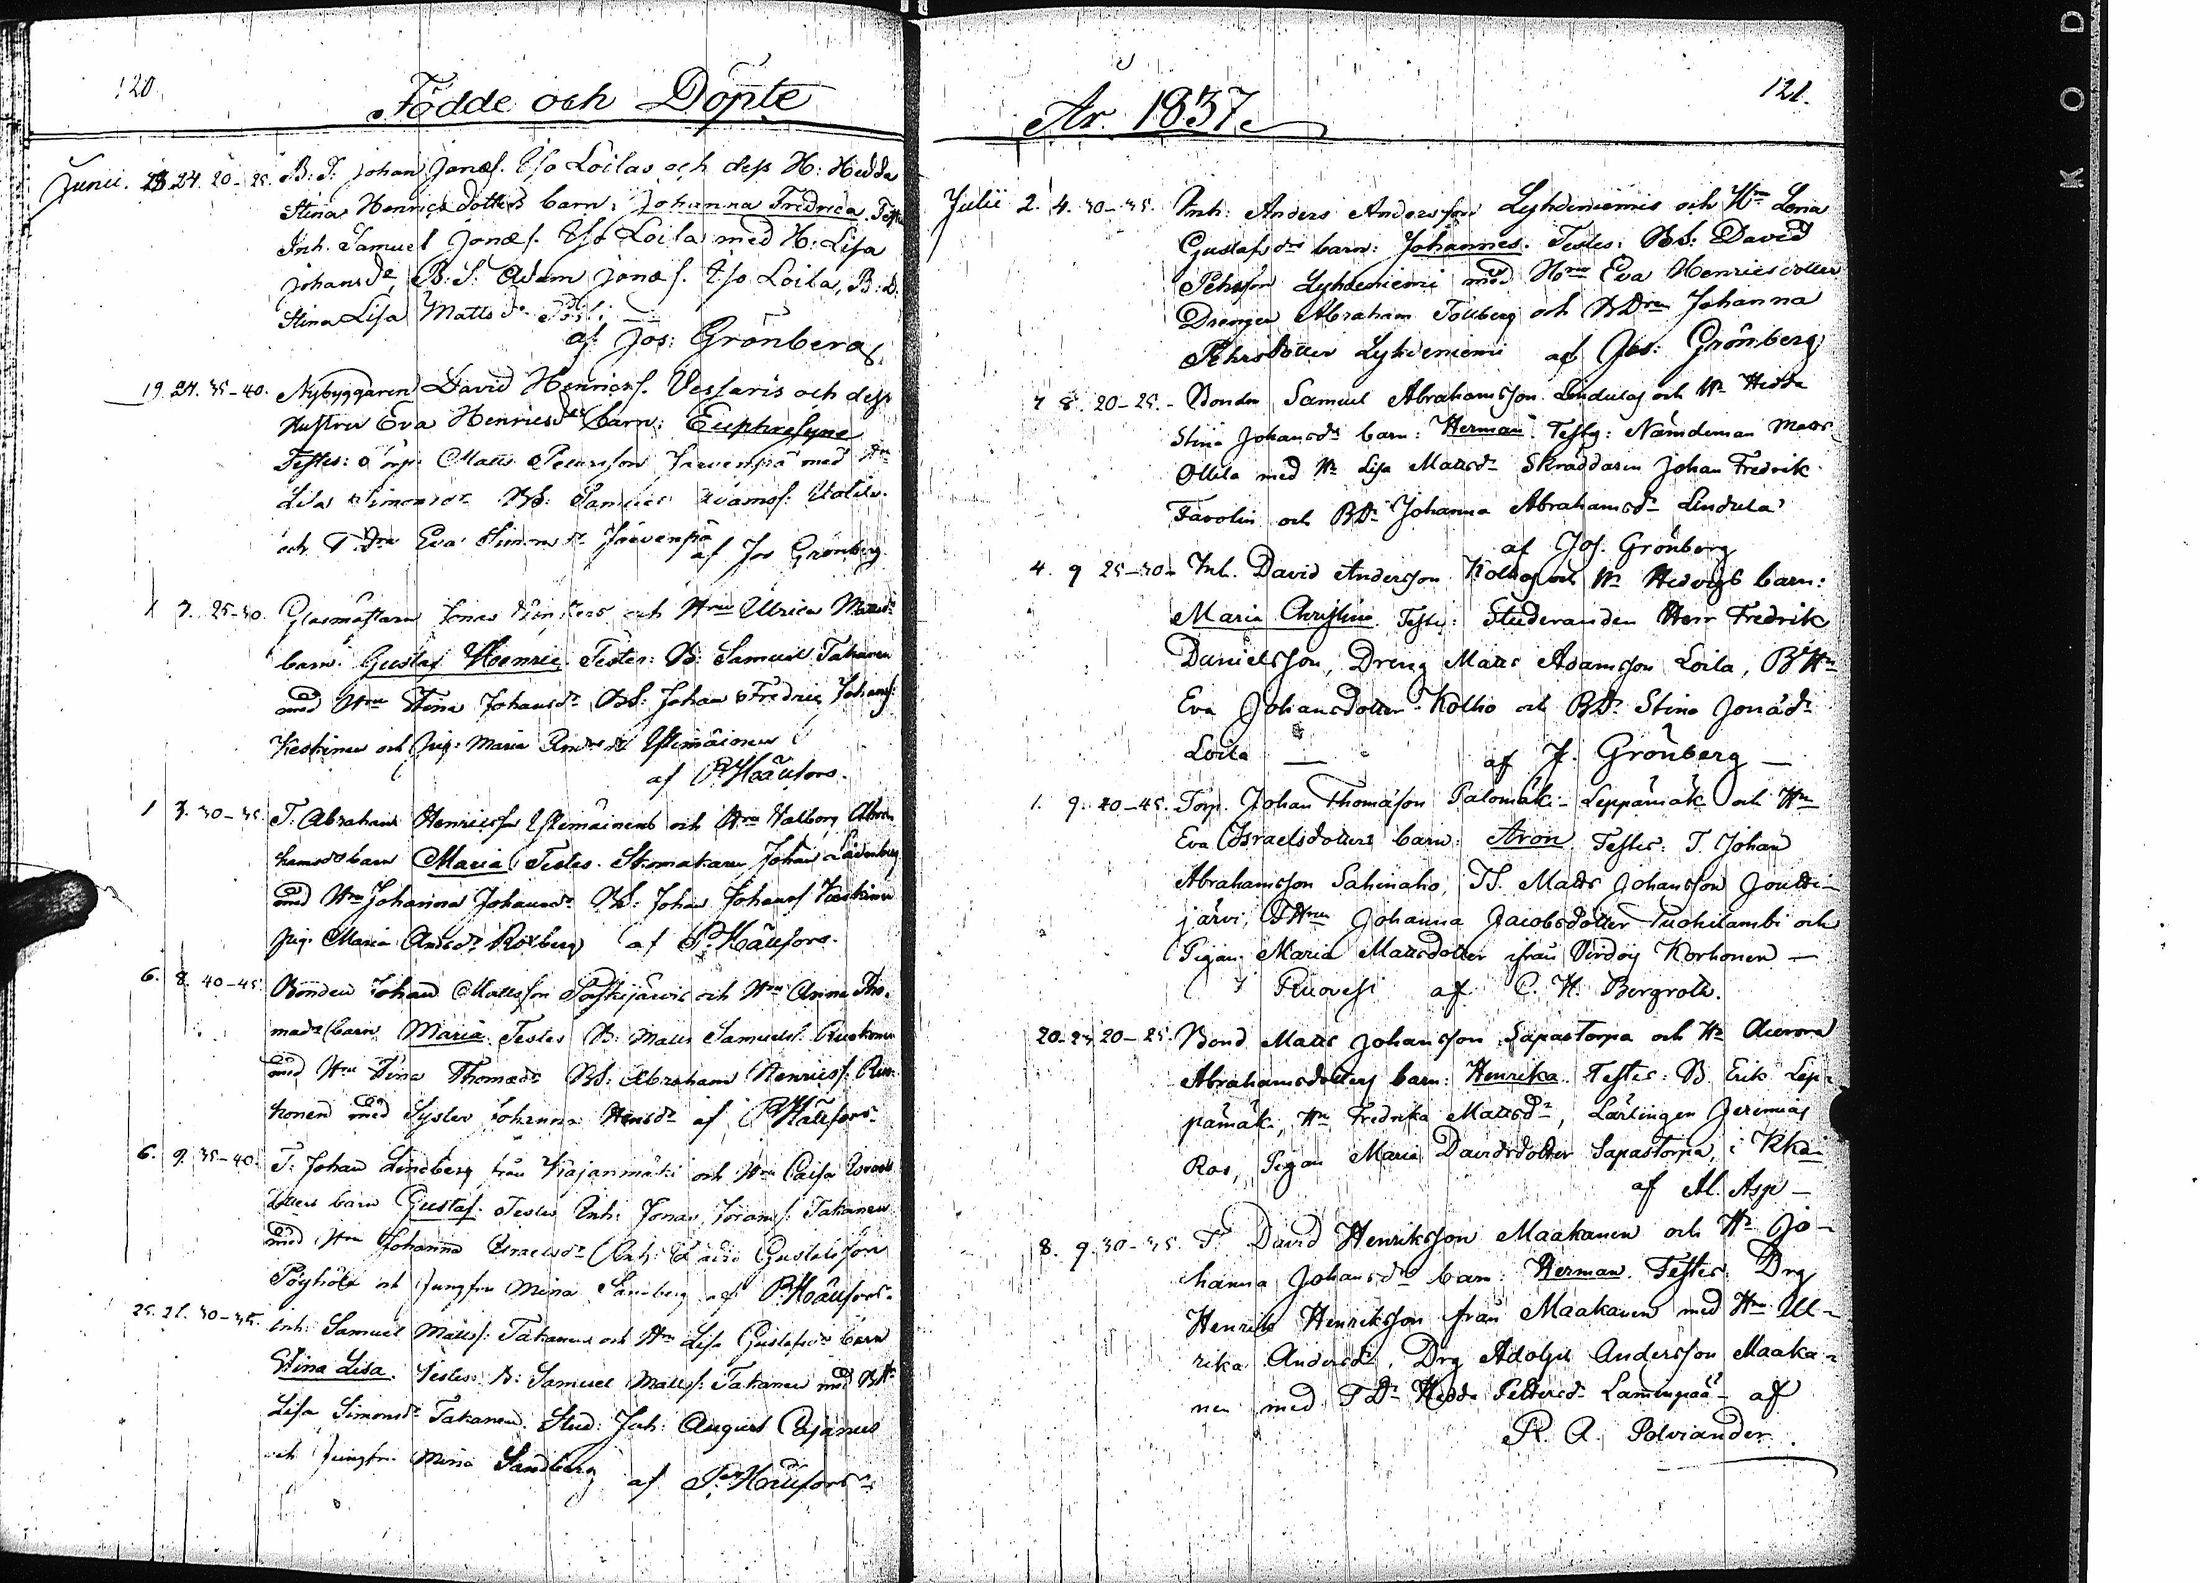 120.
Födde och Döpte
Junii. 23 24. 20-25. B: S: Johan Jonæs. Iso Loilas och dess H: Hedda
Stina Henrics dotters barn: Johanna Fredrica. Test:
Inh. Samuel Jonæs. Iso Loila med H: Lisa
Johansdr, B: S: Adam Jonæs. Iso Loila, B: d.
Stina Lisa Mattsdr
af Jos: Grönberg.
19. 24. 35-40. Nybyggaren David Henricss. Vessaris och dess
Hustru Eva Henricsdrs barn: Euphrosyne
Testes: Torp. Matts Petersson Järvenpä med Hu
Lisa Simonsdr BS: Samuel Adamss.
och T. Dr Eva Simonsdr Järvenpä af Jos Grönberg.
1 7. 25-30. Glasmästarn Jonas och Hru Ulrica Mattsdrs
barn. Gustaf Hoenric. Testes: B: Samuel Takanen
med Hru Stina Johansdr BS: Johan Fredric Johanss:
Keskinen och Pig: Maria Andersdr Ylimäinen
af P. Hällfors.
1 3. 30-35. T. Abraham Henricsson Ylimäinens och Hru Valborg Abra
hamsdrs barn Maria. Testes. Skomakaren Johan
med Hru Johanna Johansdr BS: Johan Johanss Keskinen
Pig: Maria Andsdr Roxberg af P. Hällfors.
6. 8. 40-45. Bonden Johan Mattsson och Hru Anna Tho-
madr barn Maria. Testes B: Matts Samuelss. Ruokonen
med Hru Stina Thomasdr BS: Abraham Henricss. Ruo-
konen med Syster Johanna Hensdr af P. Hällfors.
6. 9. 35-40. T: Johan Lindberg från Kajanmäki och Hru Caisa Israels
dotters barn Gustaf. Testes Inh: Jonas Takanen
med Hru Johanna Israelsdr Inh: Gustafsson
Pöyhölä och Jungfru Mina Sandberg af P. Hällfors.
25. 28. 30-35. Inh: Samuel Mattss: Takanens och Hru Lisa Gustafsdrs barn
Stina Lisa. Testes: B: Samuel Mattss: Takanen med BHu
Lisa Simonsdr Takanen. Stud: Joh: August Cajanus
och Jungfr. Mina Sandberg af P. Hällfors.
121.
År. 1837.
Julii 2. 4. 30-35. Inh: Anders Andersson Lyhdeniemis och Hru Lena
Gustafsdrs barn: Johannes. Testes: BS: David
Pehrsson Lyhdeniemi med Hru Eva Henricsdotter
Drengen Abraham Tollberg och BDrn Johanna
Pehrsdotter Lyhdeniemi af Jos: Grönberg
7 8. 20-25. Bonden Samuel Abrahamsson Lindulas och Hu Hedda
Stina Johansdrs barn: Herman. Testes: Nämdeman Matts
Ollila med Hu Lisa Mattsdr Skräddaren Johan Fredrik
Favolin och BDr Johanna Abrahamsdr Lindula
af Jos. Grönberg
4. 9 25-30. Inh. David Andersson Kolhos och Hu Hedvigs barn:
Maria Christina. Testes: Studeranden Herr Fredrik
Danielsson, Dreng Matts Adamsson Loila, BHu
Eva Johansdotter Kolho och BDr Stina Jonædr
Loila — af J. Grönberg —
1. 9. 40-45. Torp. Johan Thomasson Palomäki-Leppämäk och Hru
Eva Israelsdotters barn: Aron. Testes: T. Johan
Abrahamsson Sahinaho, TS. Matts Johansson Joutti-
järvi, THru Johanna Jacobsdotter Puohilambi och
Pigan Maria Mattsdotter ifrån Virdois Korhonen —
af C. H. Bergroth.
20-23 20-25. Bond. Matts Johansson Sapastorpa och Hu Aurora
Abrahamsdotters barn: Henrika. Testes: B. Erik Lep-
pämäk, Hu Fredrika Mattsdr, Lärlingen Jeremias
Ros, Pigan Maria Davidsdotter Sapastorpa, i Rka
af Al. Asp —
8. 9. 30-35. T. David Henriksson Maakanen och Hu Jo-
hanna Johansdrs barn: Herman. Testes: Drg
Henrik Henriksson från Maakanen med Hru Ul-
rika Andersdr, Drg Adolph Andersson Maaka-
nen med TDr Hedda Pettersdr Laminpää — af
R. A. Polviander.
KOD